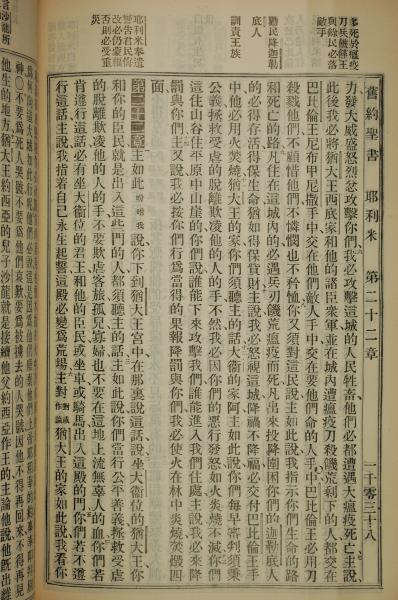 舊約聖書 耶利米 第二十二章 一千零三十八
多死於瘟疫
刀兵饑饉王
與餘民必落
敵手
勸民降迦勒
底人
訓責王族
耶利米奉遣
警告君民倘
改必仍蒙福
否則必受重
災
力發大威盛怒烈忿攻擊你們我必攻擊這城的人民牲畜他們必都遭遇大瘟疫死亡主說
此後我必將猶大王西底家和他的諸臣衆軍並在城內遭瘟疫刀殺饑荒剩下的人都交在
巴比倫王尼布甲尼撒手中交在他們敵人手中交在要他們命的人手中巴比倫王必用刀
殺戮他們不顧惜他們不憐憫也不矜恤你又須對這民說主如此說我指示你們生命的路
和死亡的路凡住在這城內的必遇兵刃饑荒瘟疫而死凡出來投降圍困你們的迦勒底人
的必得存活得保生命猶如得保貨財主說我必怒視這城降禍不降福必交付巴比倫王手
中他必用火焚燒猶大王的家你們須聽主的話大衛的家阿主如此說你們每早審判須秉
公義拯救受虐的脫離欺凌他的人的手不然我必因你們的惡行發怒如火焚燒不滅你們
這住山谷住平原中山崖的你們說誰能下來攻擊我們誰能進入我們住處主說我必來降
罰與你們主又說我必按你們行爲當得的果報降罰與你們我必使火在林中炎燒焚燬四
面
第二十二章主如此吩咐我說你下到猶大王宮中在那裏說這話說坐大衛位的猶大王你
和你的臣民就是出入這些門的人都須聽主的話主如此說你們當行公平善義拯救受虐
的脫離欺凌他的人的手不要欺虐客旅孤兒寡婦也不要在這地上流無辜人的血你們若
肯遵行這話必有坐大衛位的君王和他的臣民或坐車或騎馬出入這殿的門你們若不遵
行這話主說我指着自己永生起誓這殿必變爲荒場主對或作論猶大王的家如此說我看你
神○不要爲死人哭號不要爲他們哀歎要爲被擄去的人哭號因他不再回來不得再見
他生的地方猶大王約西亞的兒子沙龍就是接續他父約西亞作王的主論他說他旣出離